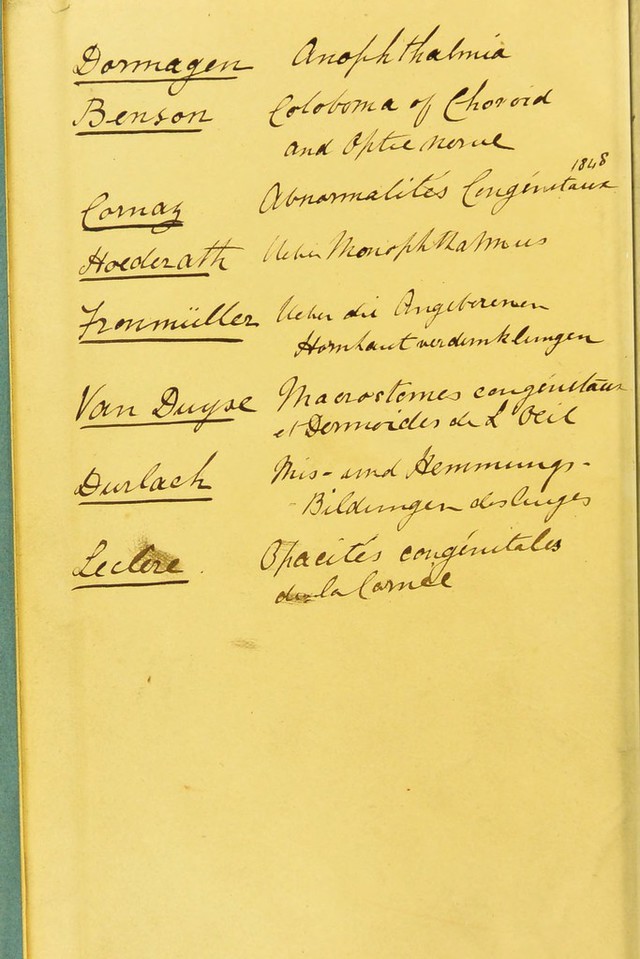 Dormagen Anophthalmia
Benson Coloboma of Choroid
and Optic nerve
1848
Cornaz Abnormalités Congénitaux
Hoederath Ueber Monophthalmus
Fronmüller Ueber die Angeborenen
Hornhautverdunklungen
Van Duyse Macrostomes congénitaux
et Dermoides de L'Oeil
Durlach Mis- und Hemmungs-
Bildungen des Auges
Leclere Opacités congénitales
de la Cornée